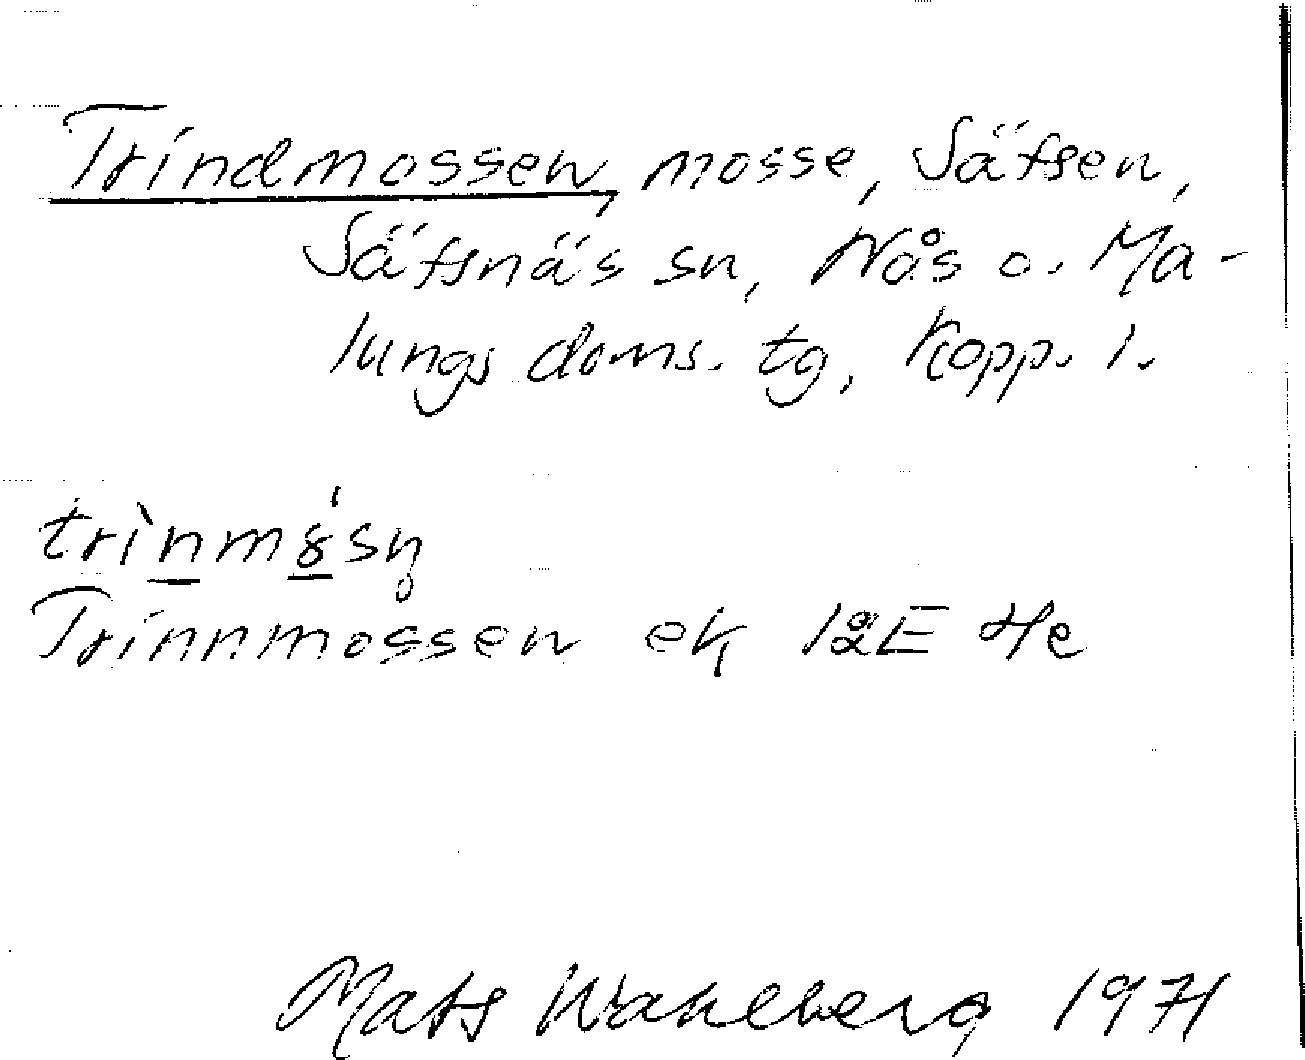 Trindmossen, mosse, Säfsen,
Säfsnäs sn, Nås o. Ma-
lungs doms. tg, Kopp. l.
Trinnmossen ek 12E 4e
Mats Wahlberg 1971